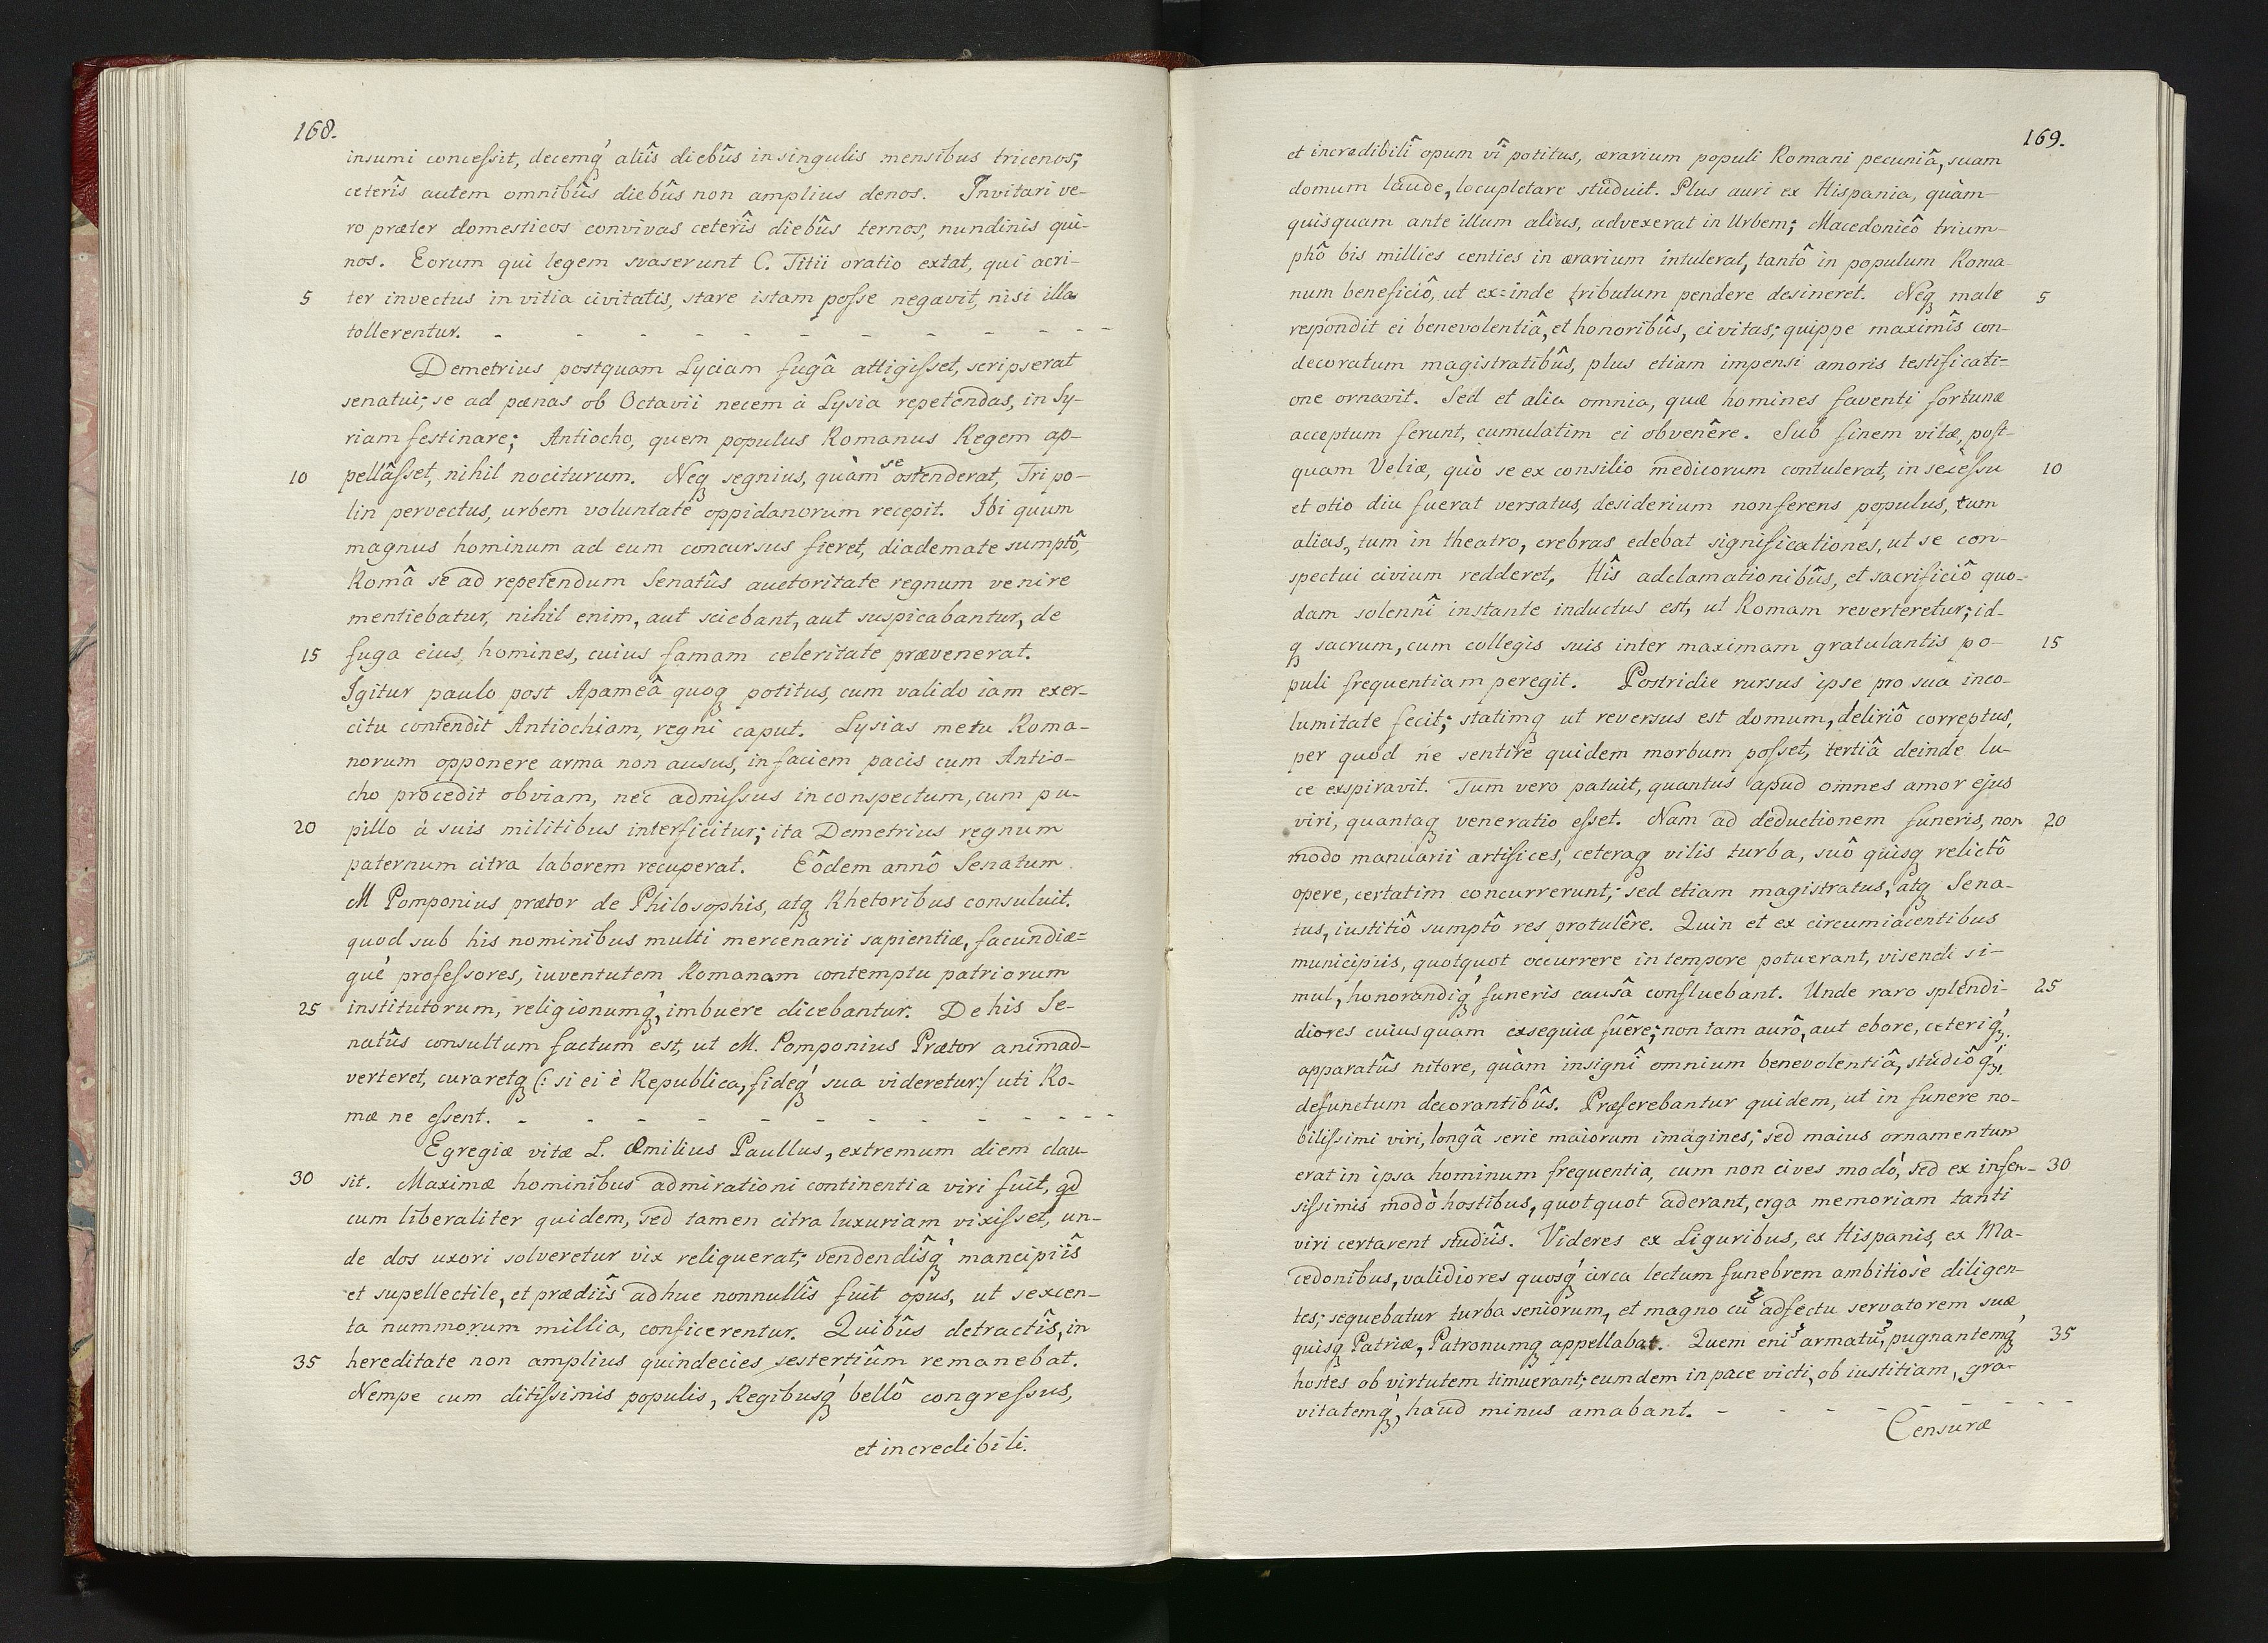 168.
insumi concessit, decemq́ aliîs diebûs in singulis mensibus tricenos;
ceterîs autem omnibûs diebûs non amplius denos. Invitari ve-
ro præter domesticos convivas ceterîs diebûs ternos, nundinis qui-
nos. Eorum qui legem svaserunt C. Titii oratio extat, qui acri-
5 ter invectus in vitia civitatis, stare istam posse negavit, nisi illa
tollerentur. - - - - - - - - - - - -
Demetrius postquam Lyciam fugâ attigisset, scripserat
senatui; se ad pœnas ob Octavii necem à Lysia repetendas, in Sy-
riam festinare; Antiocho, quem populus Romanus Regem ap-
10 pellâsset, nihil nociturum. Neq segnius, quàm se ostenderat, Tripo-
lin pervectus, urbem voluntate oppidanorum recepit. Ibi quum
magnus hominum ad eum concursus fieret, diademate sumptô,
Româ se ad repetendum Senatûs auctoritate regnum venire
mentiebatur, nihil enim, aut sciebant, aut suspicabantur, de
15 fuga eius, homines, cuius famam celeritate prævenerat.
Igitur paulo post Apameâ quoq potitus, cum valido iam exer-
citu contendit Antiochiam, regni caput. Lysias metu Roma-
norum opponere arma non ausus, in faciem pacis cum Antio-
cho procedit obviam, nec admissus in conspectum, cum pu-
20 pillo à suis militibus interficitur; ita Demetrius regnum
paternum citra laborem recuperat. Eôdem annô Senatum
M Pomponius prætor de Philosophis, atq Rhetoribus consuluit.
quod sub his nominibus multi mercenarii sapientiæ, facundiæ=
què professores, iuventutem Romanam contemptu patriorum
25 institutorum, religionumq́, imbuere dicebantur. De his Se-
natûs consultum factum est, ut M. Pomponius Prætor animad-
verteret, curaretq (: si ei è Republica, fideq́ sua videretur:/ uti Ro-
mæ ne essent. - - - - - - - - - - - -
Egregiæ vitæ L. Æmilius Paullus, extremum diem clau-
30 sit. Maximæ hominibus admirationi continentia viri fuit, qd
cum liberaliter quidem, sed tamen citra luxuriam vixisset, un-
de dos uxori solveretur vix reliquerat; vendendîsq́ mancipiîs
et supellectile, et prædiîs adhuc nonnullîs fuit opus, ut sexcen-
ta nummorum millia, conficerentur. Quibûs detractîs, in
35 hereditate non amplius quindecies sestertiûm remanebat.
Nempe cum ditissimis populis, Regibusq́ bellô congressus,
et incredibili.
169.
et incredibilî opum vî potitus, ærarium populi Romani pecuniâ, suam
domum laude, locupletare studuit. Plus auri ex Hispania, quàm
quisquam ante illum alius, advexerat in Urbem; Macedonicô trium-
phô bis millies centies in ærarium intulerat, tantô in populum Roma-
num beneficiô, ut ex=inde tributum pendere desineret. Neq male 5
respondit ei benevolentiâ, et honoribûs, civitas; quippe maximîs con-
decoratum magistratibûs, plus etiam impensi amoris testificati=
one ornavit. Sed et alia omnia, quæ homines faventi fortunæ
acceptum ferunt, cumulatim ei obvenêre. Sub finem vitæ, post-
quam Veliæ, quò se ex consilio medicorum contulerat, in secessu 10
et otio diu fuerat versatus, desiderium non ferens populus, tum
alias, tum in theatro, crebras edebat significationes, ut se con-
spectui civium redderet. Hîs adclamationibûs, et sacrificiô quo-
dam solennî instante inductus est, ut Romam reverteretur; id-
q sacrum, cum collegis suis inter maximam gratulantis po- 15
puli frequentiam peregit. Postridie rursus ipse pro sua inco-
lumitate fecit; statimq ut reversus est domum, deliriô correptus,
per quod ne sentire quidem morbum posset, tertiâ deinde lu-
ce exspiravit. Tum vero patuit, quantus apud omnes amor ejus
viri, quantaq veneratio esset. Nam ad deductionem funeris, non 20
modo manuarii artifices, ceteraq vilis turba, suô quisq relictô
opere, certatim concurrerunt; sed etiam magistratus, atq Sena-
tus, iustitiô sumptô res protulêre. Quin et ex circumiacentibus
municipiis, quotquot occurrere in tempore potuerant, visendi si-
mul, honorandiq́ funeris causâ confluebant. Unde raro splendi- 25
diores cuiusquam exsequiæ fuêre; non tam aurô, aut ebore, ceteriq́,
apparatûs nitore, quàm insignî omnium benevolentiâ, studiôq́,
defunctum decorantibûs. Præferebantur quidem, ut in funere no-
bilissimi viri, longâ serie maiorum imagines; sed maius ornamentum
erat in ipsa hominum frequentia, cum non cives modò, sed ex infen- 30
sissimis modò hostibus, quotquot aderant, erga memoriam tanti
viri certarent studiîs. Videres ex Liguribus, ex Hispanis, ex Ma-
cedonibus, validiores quosq́ circa lectum funebrem ambitiosè diligen-
tes; sequebatur turba seniorum, et magno cū adfectu servatorem suæ
quisq Patriæ, Patronumq appellabat. Quem eni armatū, pugnantemq́ 35
hostes ob virtutem timuerant; eumdem in pace victi, ob iustitiam, gra-
vitatemq́, haud minus amabant. - - - - - - - -
Censuræ